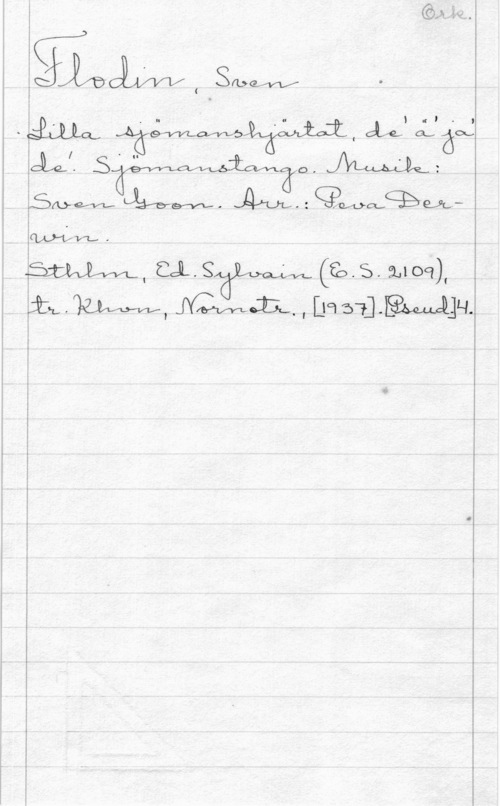 Ork.
Flodin, Sven
Lilla sjömanshjärtat, de' ä' ja'
de'. Sjömanstango. Musik:
Sven Goon. Arr.: Peva Der-
win.
Sthlm, Ed. Sylvain (E. S. 2109),
tr. Khvn, Nornotr., [1937]. [Pseud] 4.